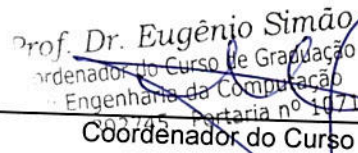 Prof. Dr. Eugênio Simão
ordenador do Curso de Graduação
Engenharia da Computação
Portaria nº 1071
Coordenador do Curso